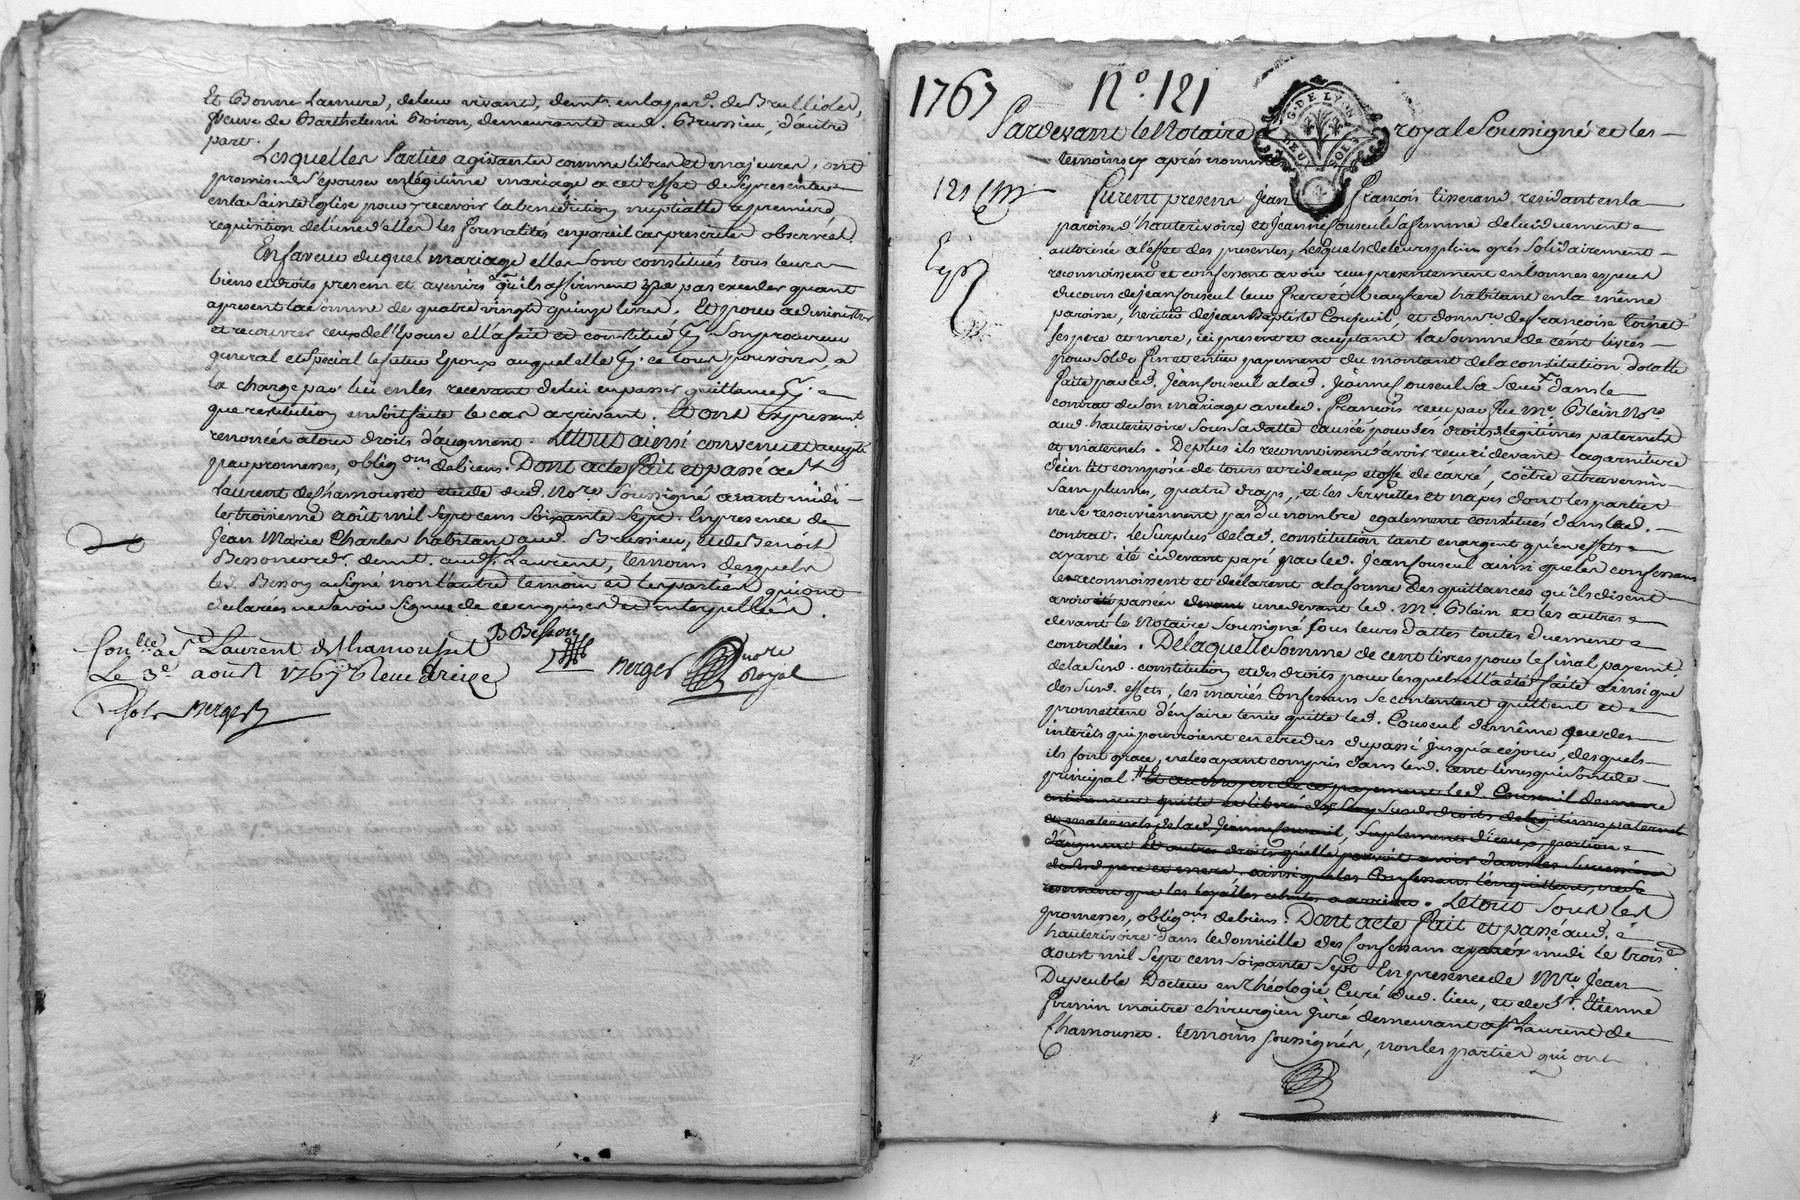 Et Bonne Lamure, de leur vivant, demts. en la par.e de Brullioles,
veuve de Barthelemi Boiron, demeurante aud. Brussieu, d'autre
part.
Lesquelles Parties agissantes comme libres et majeures, ont
promis de s'épouser en légitime mariage a cet effet de se présenter
en la Sainte Eglise pour y recevoir la benediction nuptialle a premiere
requisition de l'une d'elles les formalités en pareil cas prescrites observées.
En faveur duquel mariage elles se sont constitués tous leurs
biens et droits presens et avenirs qu'ils affirment ne pas exceder quant
a present la somme de quatre vingt quinze livres. Et pour administrer
et recouvrer ceux de l'Epouse elle a fait et constitué son procureur
general et special le futur Epoux auquel elle ce tous pouvoirs, a
la charge par lui en les recevant de lui en passer quittance
que restitution en soit faite le cas arrivant. Et ont expressemt.
renoncés a tous droits d'augment. Le tout ainsi convenu et accepté
par promesses, obligons. de biens. Dont acte fait et passé a St.
Laurent de Chamousset etude dud. Nore. soussigné avant midi
le troisieme août mil sept cens soixante sept. En presence de
Jean Marie Charles habitant aud. Brussieu, et de Benoit
Besson cordr. demt. aud. St. Laurent, temoins desquels
led. Besson a signé non l'autre temoin et les parties qui ont
declarées ne savoir signer de ce enquises et interpellées.
B Besson
Conllé. a St. Laurent de Chamousset
Le 3e. aout 1767 Reçu treize
Berger
Berger nore Royal
1767 N°. 121
G. DE LYON
DEUX SOLS
Pardevant le Notaire royal soussigné et les
temoins cy aprés nommés
121
Furent presens Jean François tisserand, residant en la
paroisse d'hauterivoire, et Jeanne Couseul sa femme de lui duement
autorisée a l'effet des presentes, lesquels de leurs plein grés solidairement
reconnoissent et confessent avoir reçu presentement en bonnes especes
du cours de jean Couseul leur frere et beaufrere habitant en la même
paroisse, heritier de jean Baptiste Couseul, et donnre. de françoise
ses pere et mere, ici present et acceptant la somme de cent livres
pour solde fin et entier payement du montant de la constitution dotalle
faite par led. Jean Couseul a lad. Jeanne Couseul sa sœur dans le
contrat de son mariage avec led. François reçu par feu Me. Blein Nore.
aud. hauterivoire sous sa datte causée pour ses droits de légitimes paternels
et maternels. De plus ils reconnoissent d'avoir reçu ci devant la garniture
d'un lit composée de tours et rideaux etoffe de carré, coëtre et traversin
sans plumes, quatre draps, et les serviettes et napes dont les parties
ne se resouviennent pas du nombre egalement constitués dans led.
contrat. Le surplus de lad. constitution tant en argent qu'en effets
ayant été cidevant payé par led. Jean Couseul ainsi que les confessans
le reconnoissent et déclarent a la forme des quittances qu'ils disent
avoir passées une devant led. Me. Blein et les autres
devant le Notaire soussigné sous leurs dattes toutes duement
controllées. De laquelle somme de cent livres pour le final payemt.
de lasusd. constitution et des droits pour lesquels elle a été faite ainsi que
des susd. effets, les mariés confessans se contentent quittent et
promettent d'en faire tenir quitte led. Couseul de même que des
intérêts qui pourroient en etre dus du passé jusqu'a ce jour, desquels
ils font grace, ou les ayant compris dans lesd. cent livres qui sont de
principal # Et au moyen de ce payement led. Couseul demeure
entierement quitte et libéré des susd. droits de legitimes paternels
et maternels de lad. Jeanne Couseul, suplement d'iceux, portion
d'augment et autres droits qu'elle pouvoit avoir dans les successions
desd. pere et mere, ainsi que les confessans l'en quittent, ne se
reservant que les loyalles echutes a arriver. Le tout sous les
promesses, obligons. de biens. Dont acte fait et passé aud.
hauterivoire dans le domicille des confessans aprés midi le troise.
aoust mil sept cens soixante sept En presence de Mre. Jean
Dupeuble Docteur en Théologie Curé dud. lieu, et de Sr. Etienne
Firmin maitre chirurgien juré demeurant a St. Laurent de
Chamousset. temoins soussignés, non les parties qui ont